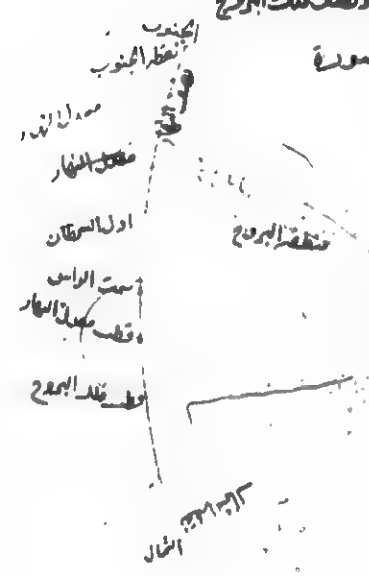 فلك البروج
صورة
الجنوب
نقطة الجنوب
معدل النهار
معدل النهار
اول السرطان
منطقة البروج
سمت الراس
قطب معدل النهار
قطب فلك البروج
الشمال